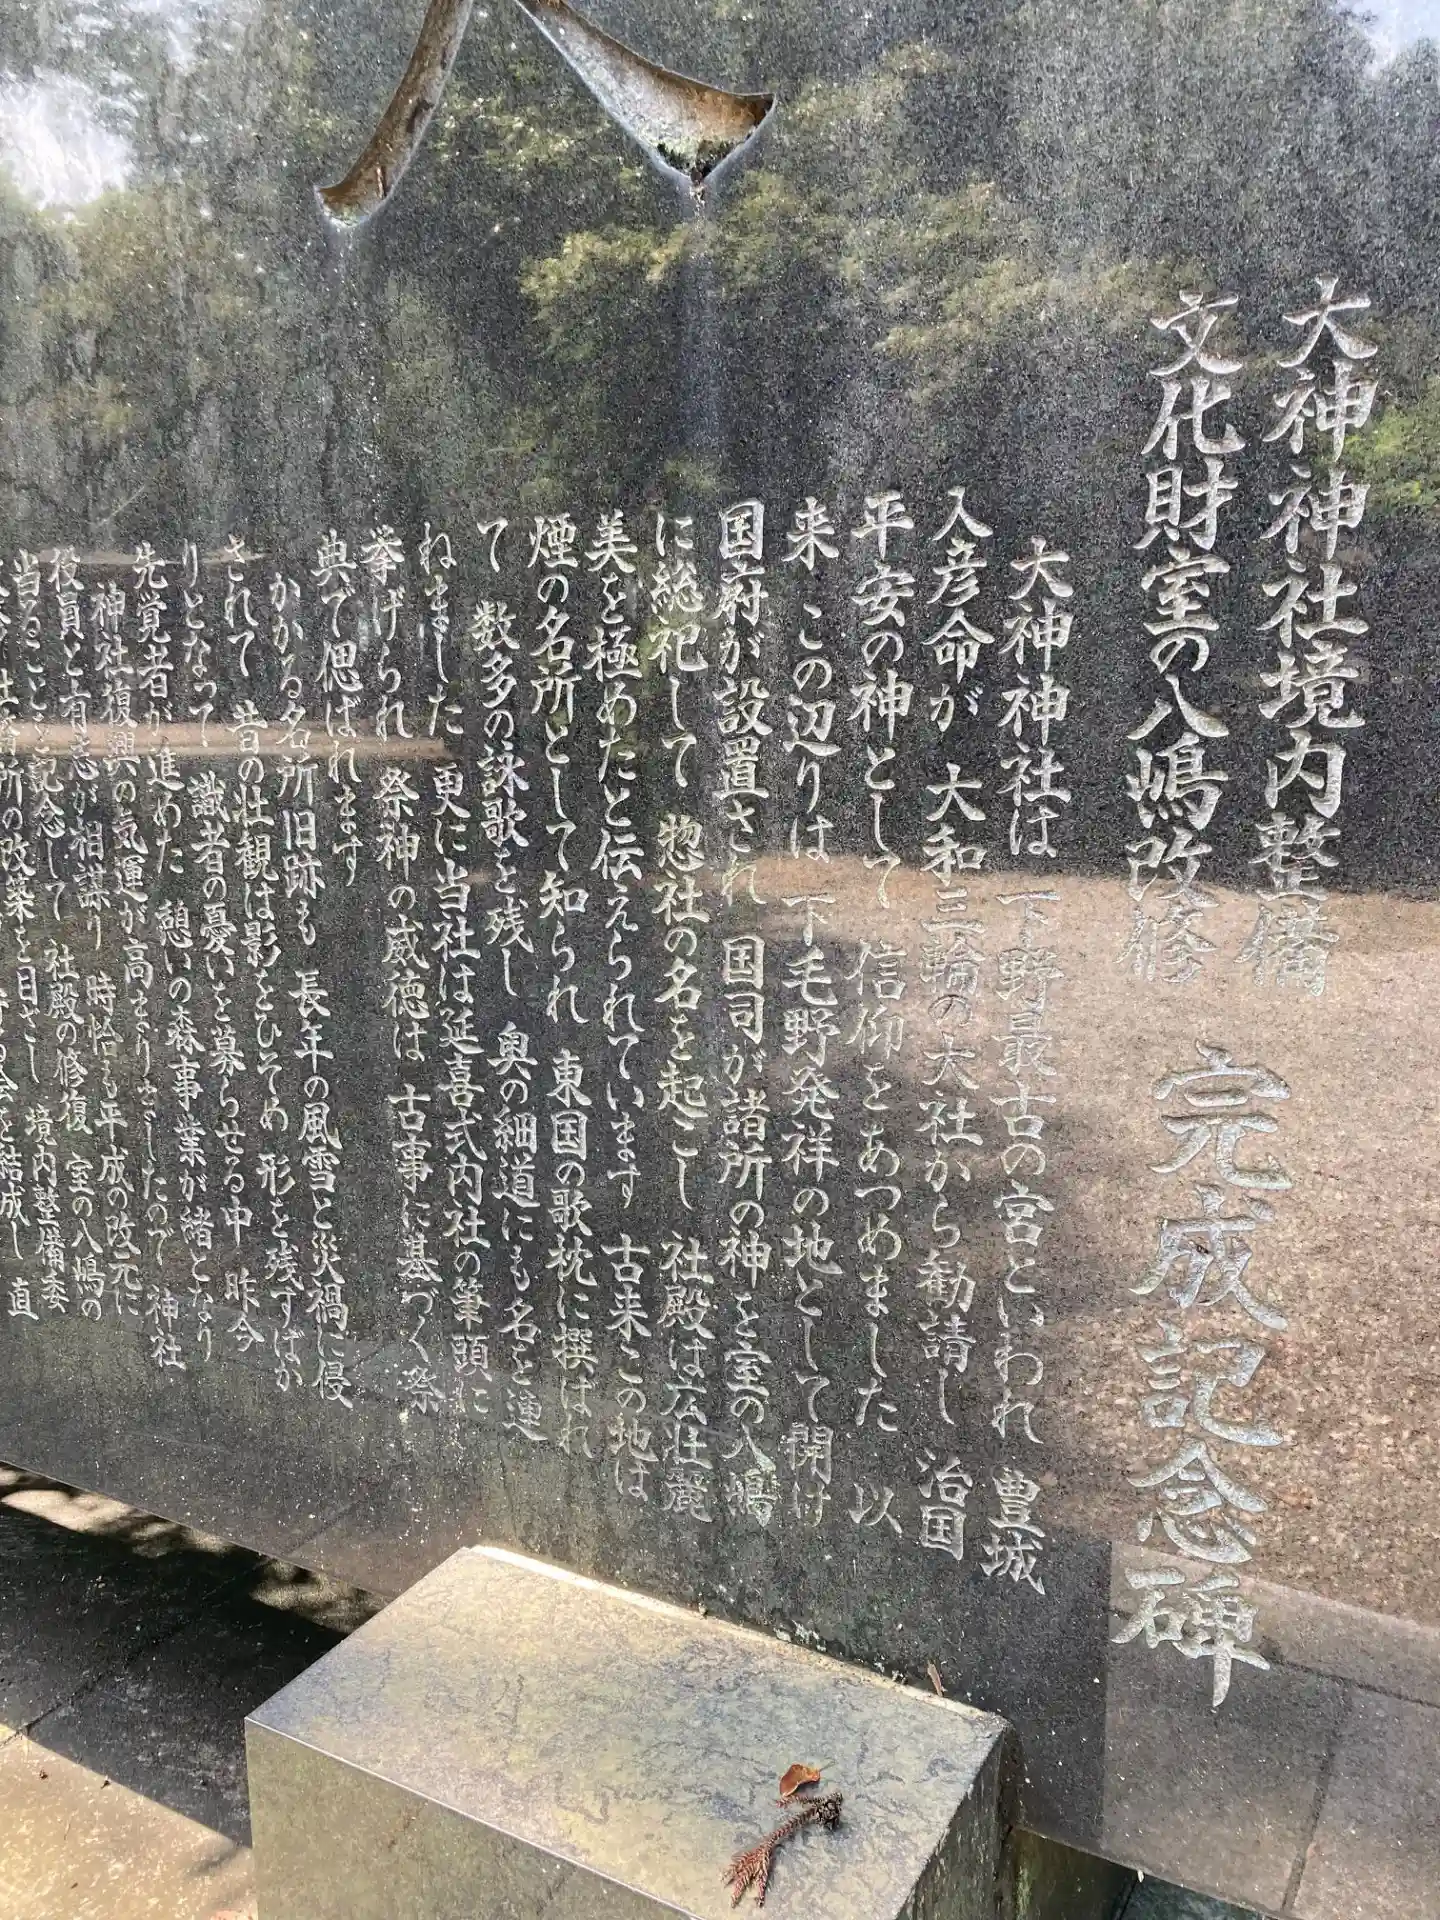 大神神社境内整備
文化財室の八嶋改修 完成記念碑
大神神社は 下野最古の宮といわれ 豊城
入彦命が 大和三輪の大社から勧請し 治国
平安の神として 信仰をあつめました 以
来 この辺りは 下毛野発祥の地として開け
国府が設置され 国司が諸所の神を室の八嶋
に総祀して 惣社の名を起こし 社殿は広壮麗
美を極めたと伝えられています 古来この地は
煙の名所として知られ 東国の歌枕に撰ばれ
て 数多の詠歌を残し 奥の細道にも名を連
ねました 更に当社は延喜式内社の筆頭に
挙げられ 祭神の威徳は 古事に基づく祭
典で偲ばれます
かかる名所旧跡も 長年の風雪と災禍に侵
されて 昔の壮観は影をひそめ 形を残すばか
りとなって 識者の憂いを募らせる中 昨今
先覚者が進めた 憩いの森事業が緒となり
神社復興の気運が高まりましたので 神社
役員と有志が相謀り 時恰も平成の改元に
当ることを記念して 社殿の修復 室の八嶋の
所の改築を目ざし 境内整備委
会を結成し 直